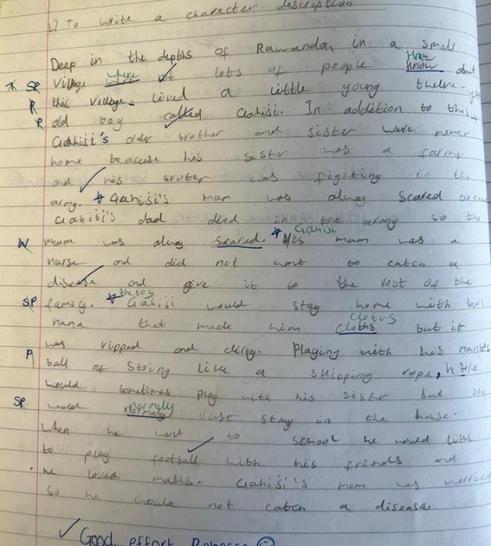 L) To write a character description
Deep in the depths of Rawanda, in a small
Village where lots of people know about
this village. Lived a little young twelve-
old boy called Gahisi. In addition to this
Gahisi's older brother and sister were never
home because his sister was a farmer
and his brother was figiting in the
army. * Gahisi's mum was alway scared
Gahisi's dad died in the army so the
mum was alway scared. * His mum was a
nurse and did not want to catch a
disease and give it to the rest of the
family. * Gahisi would stay home with his
nana that made him cloths but it
was ripped and clingy. Playing with his
ball of string like a skipping rope, h
would sometimes play with his sister but she
would normally Just stay in the house.
When he went to school he would like
to play football with his friends and
he loved maths. Gahisi's mom was worried
so he would not catch a disease.
✓ Good effort